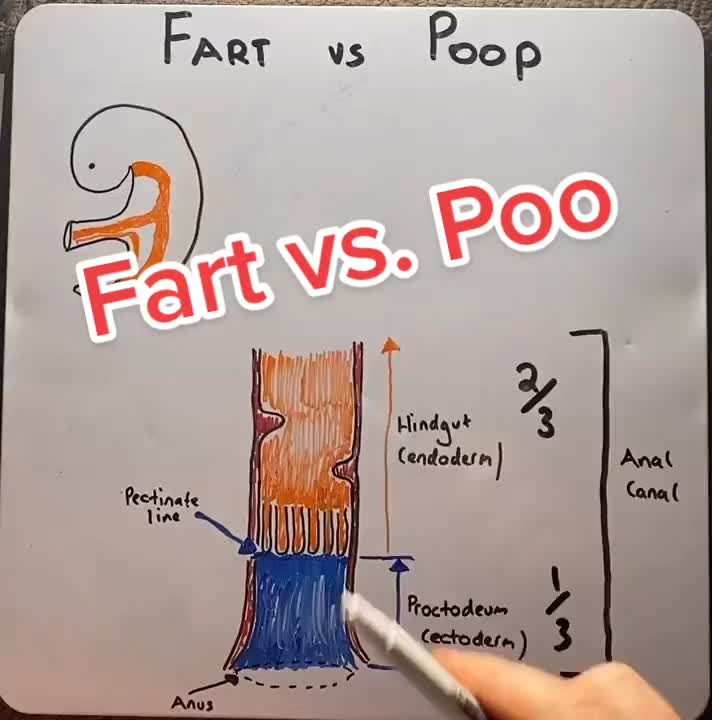 FART vs POOP
Fart vs. Poo
2/3
Hindgut
(endoderm)
Anal
Canal
Pectinate
line
1/3
Proctodeum
(ectoderm)
Anus